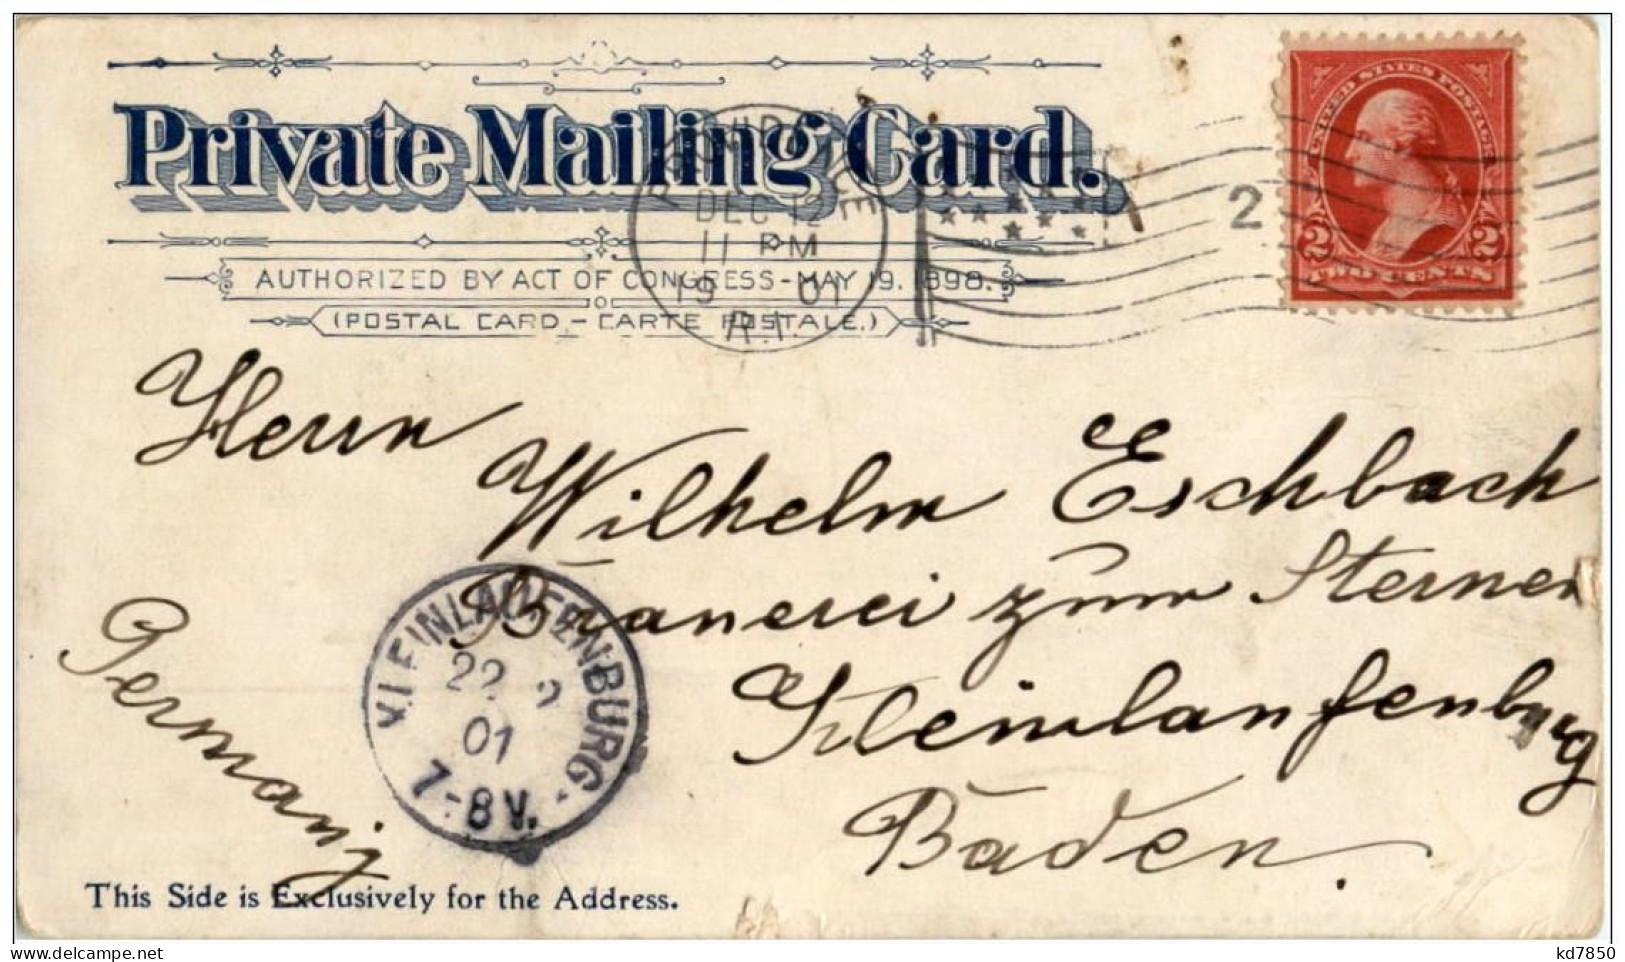 Private Mailing Card.
AUTHORIZED BY ACT OF CONGRESS-MAY 19. 1898.
(POSTAL CARD - CARTE POSTALE.)
PROVIDENCE
DEC 12
11 PM
1901
R.I.
2
UNITED STATES POSTAGE
2 2
TWO CENTS
Herrn
Wilhelm Eschbach
Brauerei zum Sternen
Kleinlaufenburg
Baden.
Germany
KLEINLAUFENBURG
22
01
7-8 V.
This Side is Exclusively for the Address.
www.delcampe.net
kd7850